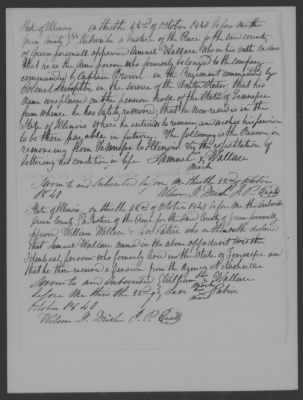 State of Illinois on this the 22nd of October 1840 before me the
Green County SS Subscriber a Justice of the Peace for the said county
of Green personally appeared Samuel Wallace who on his oath declares
that he is the same person who formerly belonged to the company
commanded by Captain in the Regiment commanded by
Colonel in the service of the United States; that his
name was placed on the pension roll of the State of Tennessee
from whence he has lately removed; that he now resides in the
State of Illinois where he intends to remain, and wishes his pension
to be there payable in future. The following is the Reason for
removing from Tennessee to Illinois Viz the expectation of
bettering his condition in life Samuel Wallace
mark
Sworn to and Subscribed before me this the 22nd of October
1840 Wilson J. P.
State of Illinois, on this the 22nd of October 1840 before me the Subscriber
Green County SS a Justice of the Peace for the Said County of Green personally
appeared William Wallace & who on Oath declare
that Samuel Wallace named in the above affidavit is the
Identical person who formerly lived in the State of Tennessee and
that he there received a pension from the agency at Nashville
Sworn to and Subscribed William Wallace
before me this the 22nd of mark
October 1840 mark
Wilson J. P.